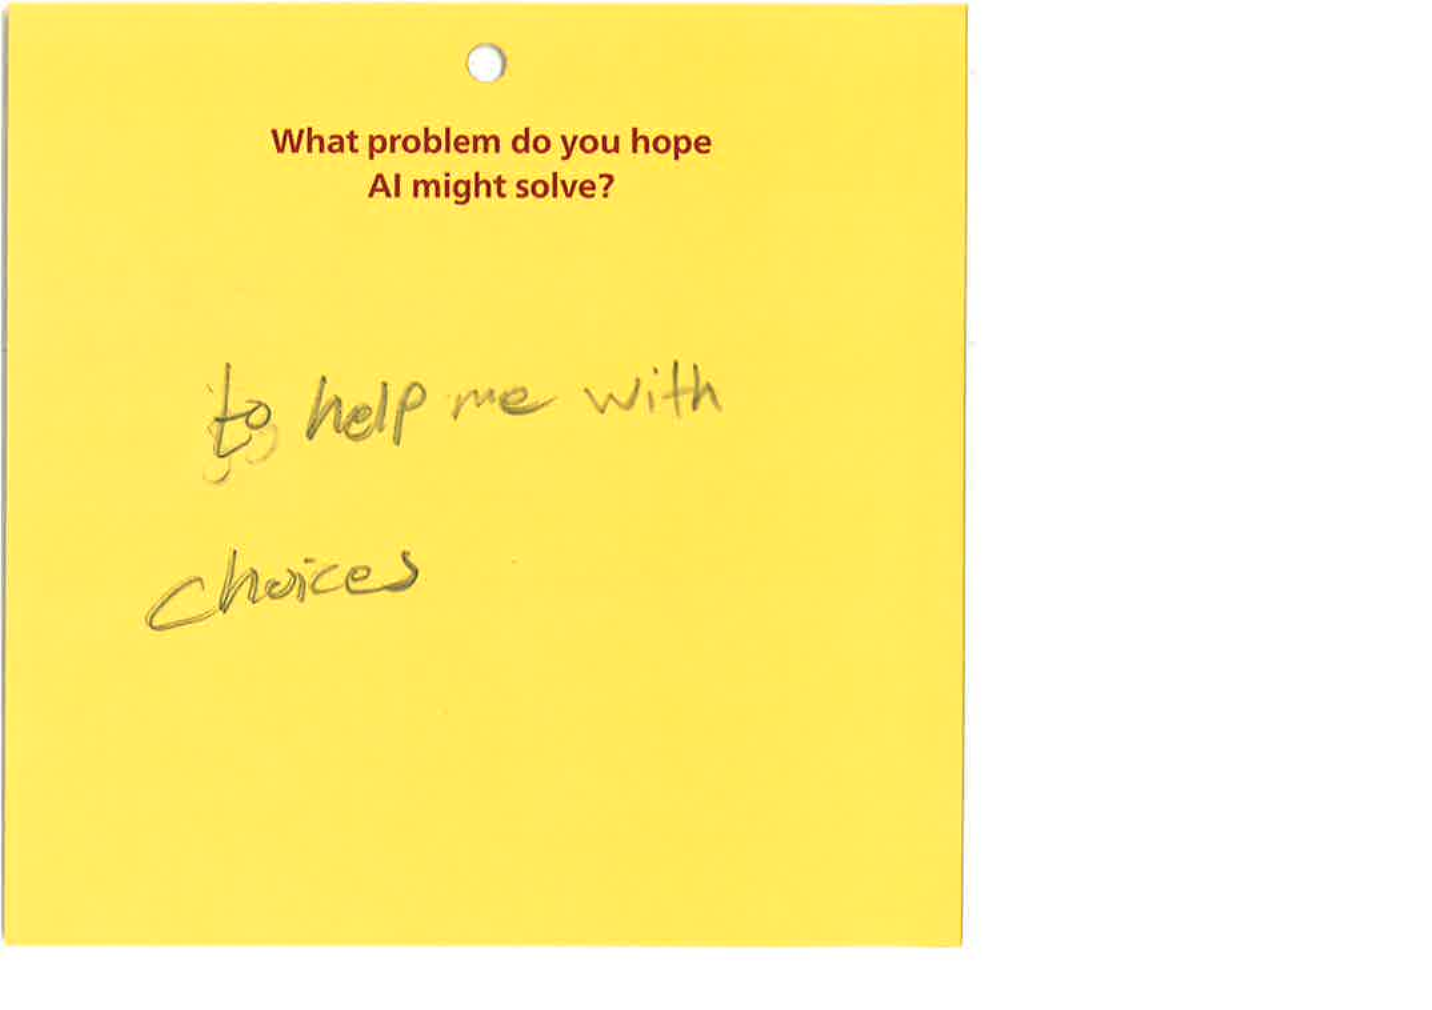 What problem do you hope
AI might solve?
to help me with
choices